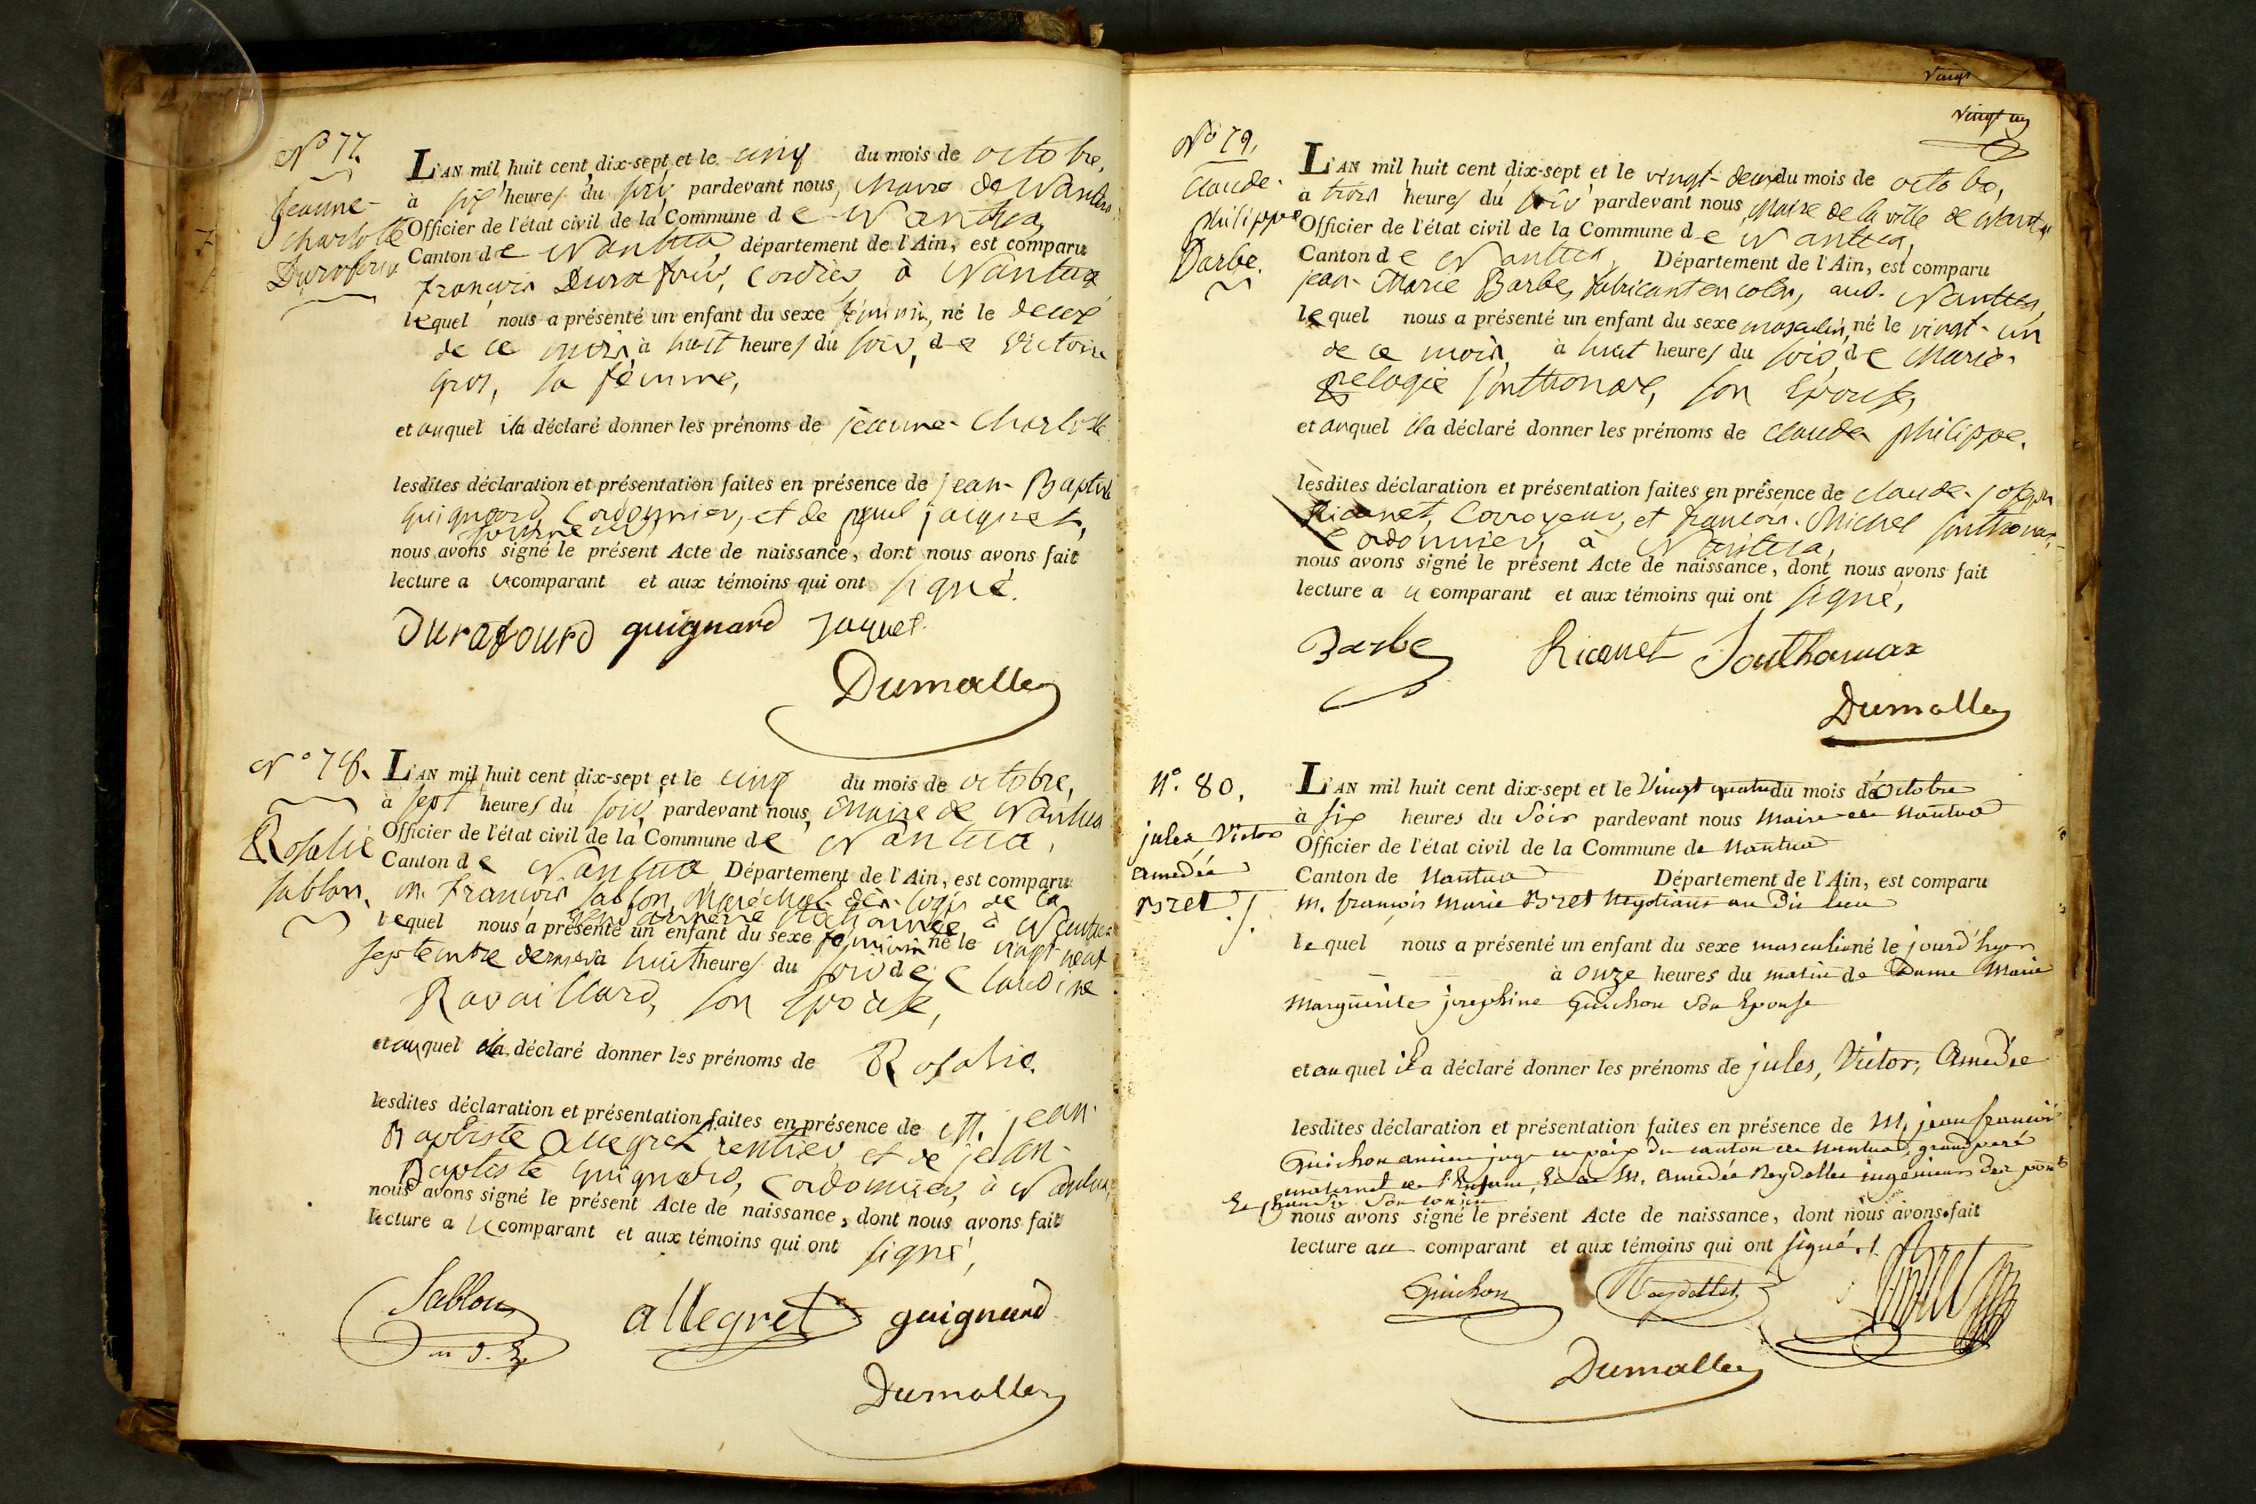 N° 77.
Jeanne-
Charlotte
Durafour
L'AN mil huit cent dix-sept et le cinq du mois de octobre,
à six heures du soir, pardevant nous, Maire de Nantua
Officier de l'état civil de la Commune de Nantua,
Canton de Nantua, département de l'Ain, est comparu
françois Durafour, cordier à Nantua,
lequel nous a présenté un enfant du sexe féminin, né le deux
de ce mois, à huit heures du soir, de Victoire
Gros, sa femme,
et auquel il a déclaré donner les prénoms de jeanne-Charlotte.
lesdites déclaration et présentation faites en présence de jean-Baptiste
guignard Cordonnier, et de jacquet,
nous avons signé le présent Acte de naissance, dont nous avons fait
lecture au comparant et aux témoins qui ont signé.
Durafourd guignard Jaquet
Dumolle
N° 78.
Rosalie
Sablon.
L'AN mil huit cent dix-sept et le cinq du mois de octobre,
à sept heures du soir, pardevant nous, Maire de Nantua
Officier de l'état civil de la Commune de Nantua,
Canton de Nantua Département de l'Ain, est comparu
M. françois Sablon, Maréchal-des-logis de la
gendarmerie stationnée à Nantua
lequel nous a présenté un enfant du sexe féminin né le vingt neuf
septembre dernier à huit heures du soir de Claudine
Ravaillard, son Epouse,
et auquel il a déclaré donner les prénoms de Rosalie.
lesdites déclaration et présentation faites en présence de M. jean-
Baptiste allegret rentier et de jean-
Baptiste guignard, Cordonnier, à Nantua,
nous avons signé le présent Acte de naissance, dont nous avons fait
lecture au comparant et aux témoins qui ont signé,
Sablon allegret guignard
Dumolle
Vingt
vingt un
N° 79.
Claude-
philippe
Barbe.
L'AN mil huit cent dix-sept et le vingt-deux du mois de octobre,
à trois heures du soir pardevant nous, Maire de la ville de Nantua
Officier de l'état civil de la Commune de Nantua,
Canton de Nantua, Département de l'Ain, est comparu
jean-Marie Barbe, fabricant en coton, aud. Nantua,
lequel nous a présenté un enfant du sexe masculin, né le vingt-un
de ce mois, à huit heures du soir, de Marie-
pelagie Sonthonax, son Epouse,
et auquel il a déclaré donner les prénoms de Claude philippe.
lesdites déclaration et présentation faites en présence de claude-joseph
Ricanet, Corroyeur, et françois-Michel Sonthonax-
Cordonnier, à Nantua,
nous avons signé le présent Acte de naissance, dont nous avons fait
lecture au comparant et aux témoins qui ont signé,
Barbe Ricanet Sonthonax
Dumolle
N°. 80.
jules, Victor
amédée
Bret
L'AN mil huit cent dix-sept et le Vingt quatre du mois de octobre
à six heures du Soir pardevant nous Maire de Nantua
Officier de l'état civil de la Commune de Nantua
Canton de Nantua Département de l'Ain, est comparu
M. françois Marie Bret Negotiant au Dit lieu
lequel nous a présenté un enfant du sexe masculin né le jourd'hyer
à onze heures du matin de Dame Marie
Marguerite josephine Guichon Son Epouse
et auquel il a déclaré donner les prénoms de jules, Victor, Amedée
lesdites déclaration et présentation faites en présence de M. jean françois
Guichon ancien juge de paix du canton de Nantua, grand pere
maternel de l'Enfant, Et de M. amedée Reydellet ingenieur des ponts
Et chaussées Son cousin
nous avons signé le présent Acte de naissance, dont nous avons fait
lecture au comparant et aux témoins qui ont signé.
Guichon Reydellet Bret
Dumolle